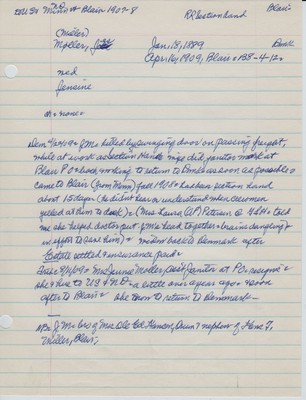 Minn & Blair 1907-8
RR section hand
Blair
(Miller)
Moller, Jas
Jan. 15, 1889
Apr. 16, 1909, Blair
ned
Jensine
none
Dem 4/20/09 J M killed by swinging door on passing freight,
while at work as section Hand wife did janitor work at
Blair P O & both wishing to return to Denmark as soon as possible
came to Blair (from Minn) fall 1908 had been section hand
about 15 days (he didn't hear or understand when crewmen
yelled at him to duck) (Mrs Laura (AP) Petersen told
me she helped doctors put hand together brains dangling
in effort to save him) widow back to Denmark after
Estate settled & insurance paid
Mrs Jensine Moller, ass't Janitor at PO resigned
she & hus to US & ND a little over a year ago & soon
after to Blair she soon to return to Denmark
J M bro of Mrs Ole Hansen, nephew of Hans J.
Miller, Blair,